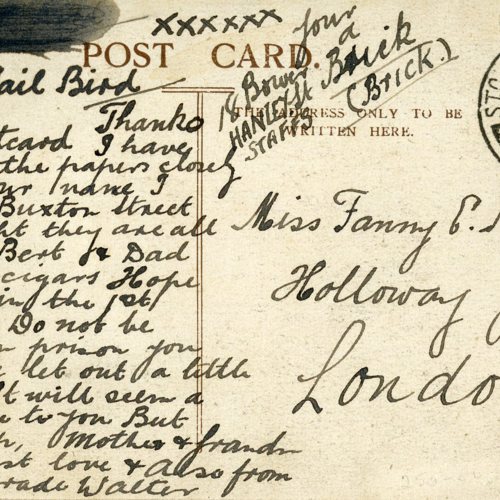 XXXXXX
POST CARD.
your
a
Brick
(BRICK.)
18 Bower St
HANLEY
STAFFS
THE ADDRESS ONLY TO BE
WRITTEN HERE.
STO
ail Bird
Thanks
tcard I have
the papers closely
ur name I
Buxton Street
ht they are all
Bert & Dad
cigars Hope
in the 1st
Do not be
prison you
let out a little
t will seem a
to you But
Mother & Grandn
st love & Also from
rade Walter
Miss Fanny E.
Holloway
Londo